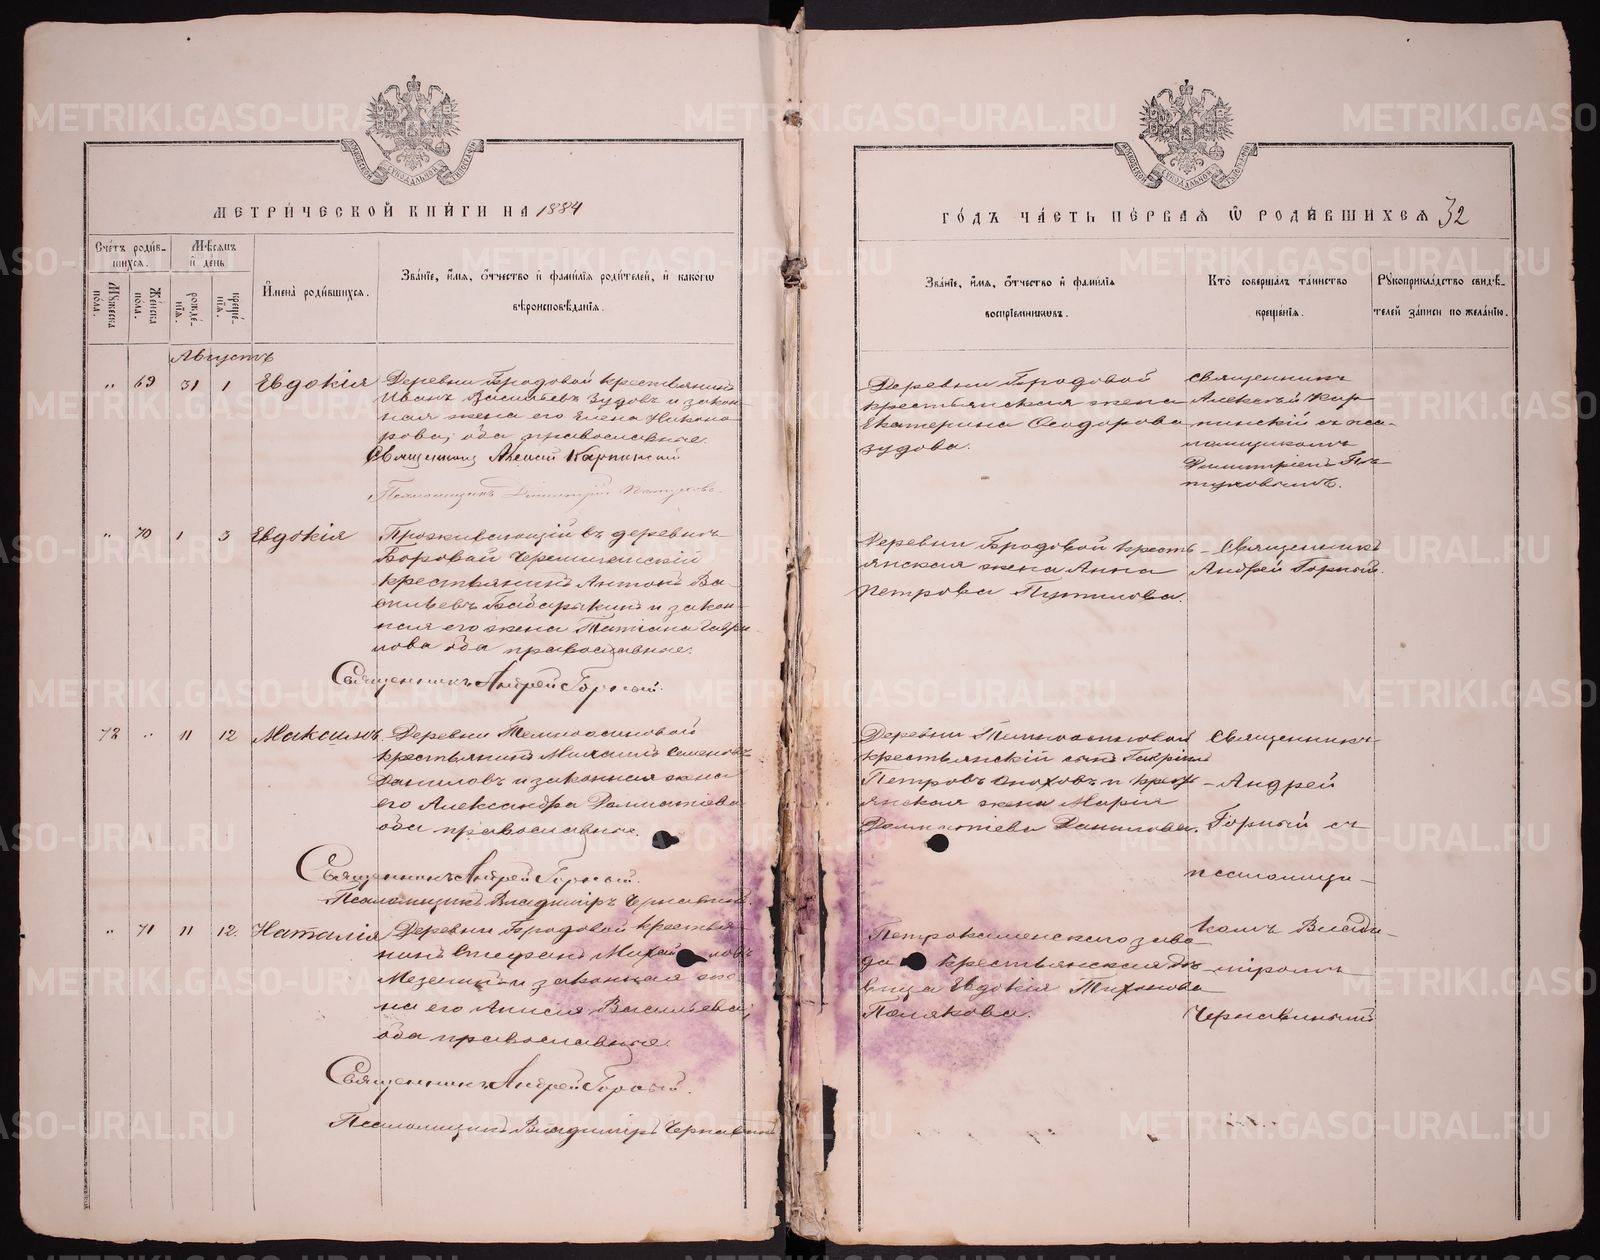 МЕТРИ́ЧЕСКОЙ КНИ́ГИ НА 1884
Сче́тъ роди́в-
шихся.
Му́жеска
по́ла.
Же́нска
по́ла.
Мѣ́сяцъ
и҆ де́нь
рожде́-
нїя.
креще́-
нїя.
И҆мена̀ роди́вшихся.
Зва́нїе, и҆́мя, ѻ҆́тчество и҆ фами́лїя роди́телей, и҆ како́гѡ
вѣроисповѣ́данїя.
Августъ
" 69 31 1 Евдокія
Деревни Бродовой крестьянинъ
Иванъ Васильевъ Зудовъ и закон-
ная жена его Елена Никано-
рова, оба православные.
Священникъ Алексій Карпинскій
Псаломщикъ Димитрій Пѣтуховъ.
" 70 1 3 Евдокія
Проживающій въ деревнѣ
Боровой Черемисскій
крестьянинъ Антонъ Ва-
сильевъ и закон-
ная его жена Татіана Гаври-
лова оба православные.
Священникъ Андрей Горный.
72 " 11 12 Максимъ
Деревни Темноосиновой
крестьянинъ Михаилъ Семеновъ
Даниловъ и законная жена
его Александра Далматіева
оба православные.
Священникъ Андрей Горный.
Псаломщикъ Владиміръ Чернавинъ.
" 71 11 12 Наталія
Деревни Бродовой крестья-
нинъ Стефанъ Михайловъ
Мезенинъ и законная же-
на его Анисія Васильева,
оба православные.
Священникъ Андрей Горный.
Псаломщикъ Владиміръ Чернавинъ
ГО́ДЪ ЧА́СТЬ ПЕ́РВАЯ Ѡ҆ РОДИ́ВШИХСЯ 32
Зва́нїе, и҆́мя, ѻ҆́тчество и҆ фами́лїя
воспрїе́мникѡвъ.
Кто̀ соверша́лъ та́инство
креще́нїя.
Рꙋкоприкла́дство свидѣ́-
телей за́писи по жела́нїю.
Деревни Бродовой
крестьянская жена
Екатерина Ѳеодорова
Зудова.
Священникъ
Алексѣй Кар-
пинскій съ пса-
ломщикомъ
Димитріемъ Пѣ-
туховымъ.
Деревни Бродовой кресть-
янская жена Анна
Петрова Путилова.
Священникъ
Андрей Горный.
Деревни Темноосиновой
крестьянскій сынъ Гавріилъ
Петровъ и крест-
янская жена Марія
Далматіева Данилова.
Священникъ
Андрей
Горный съ
псаломщи-
комъ Влади-
міромъ
Чернавинымъ
Петрокаменскаго заво-
да крестьянская дѣ-
вица Евдокія Тихонова
Полякова.
METRIKI.GASO-URAL.RU